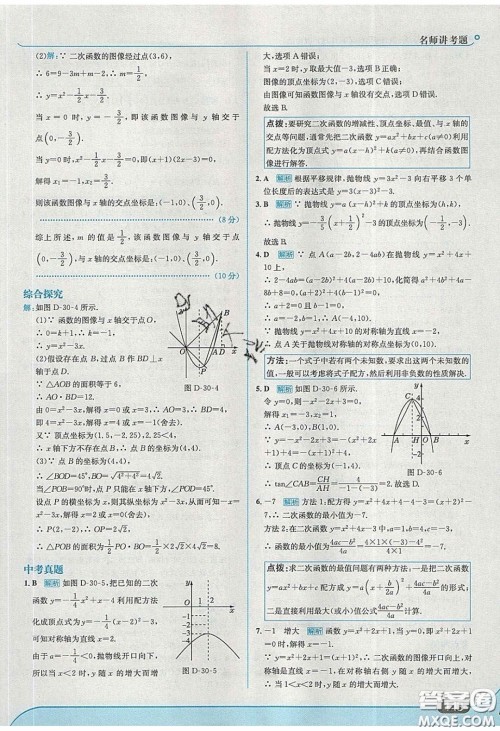 名师讲考题
(2)解:∵ 二次函数的图像经过点(3,6),
∴ 6=9-3m+m-2,∴ m=1/2,
∴ y=x²-1/2x-3/2,
当 x=0 时,y=-3/2,即该函数图像与 y 轴交于
点(0,-3/2).
当 y=0 时,x²-1/2x-3/2=0,即(x+1)(2x-3)=0,
解得 x₁=-1,x₂=3/2,
则该函数图像与 x 轴的交点坐标是:(-1,0),(3/2,0)
(8 分)
综上所述,m 的值是 1/2,该函数图像与 y 轴交于
(0,-3/2),与 x 轴的交点坐标是:(-1,0),(3/2,0).
(10 分)
综合探究
解:如图 D-30-4 所示.
(1)∵ 函数的图像与 x 轴交于点 O,
∴ 0=k+1,∴ k=-1,
∴ y=x²-3x.
(2)假设存在点 B,过点 B 作 BD⊥x
轴于点 D.
∵ △AOB 的面积等于 6,
∴ AO·BD=12.
图 D-30-4
由 0=x²-3x,解得 x=0(舍去)或 x=3,
由 4=x²-3x,解得 x=4 或 x=-1(舍去).
又∵ 顶点坐标为(1.5,-2.25),2.25<4,
∴ x 轴下方不存在点 B,∴ 点 B 的坐标为(4,4).
(3)∵ 点 B 的坐标为(4,4),
∴ ∠BOD=45°,BO=√(4²+4²)=4√2.
当∠POB=90°时,点 P 只能在 x 轴下方,∠POD=45°.
设点 P 的横坐标为 x,则其纵坐标为-x,从而可知-x=
x²-3x,解得 x=2 或 x=0(舍去).
∴ P(2,-2),∴ OP=2√2,
∴ △POB 的面积为 1/2PO·BO=1/2×2√2×4√2=8.
中考真题
1. B 解析 如图 D-30-5,把已知的二次
函数 y=-1/4x²+x-4 利用配方法
化成顶点式为 y=-1/4(x-2)²-3,
可知对称轴为直线 x=2.
由于 a=-1/4<0,抛物线开口向下,
图 D-30-5
所以当 0<x<2 时,y 随 x 的增大而增
大,选项 A 错误;
当 x=2 时,y 取最大值-3,选项 B 正确;
图像的顶点坐标为(2,-3),选项 C 错误;
由图像可知函数图像与 x 轴没有交点,选项 D 错误.
故选 B.
点拨:要研究二次函数的增减性、顶点坐标、最值、与 x 轴的
交点等问题,通常先把二次函数 y=ax²+bx+c(a≠0)利用
配方法化为顶点式 y=a(x-h)²+k(a≠0),再结合函数图
像进行解答.
2. A 解析 根据平移规律,抛物线 y=3x²-3 向右平移 3 个单
位长度后的表达式是 y=3(x-3)²-3.
3. B 解析 ∵ 抛物线 y=a(x-h)²+k 的顶点坐标为(h,k),
4. D 解析 ∵ 点 A(a-2b,2-4ab)在抛物线 y=x²+4x+
10 上,
∴ (a-2b)²+4(a-2b)+10=2-4ab,化简得 a²+4b²+4a-
∴ a+2=0 且 b-1=0,
∴ a=-2,b=1.
∵ 抛物线 y=x²+4x+10 的对称轴为直线 x=-2,
∴ 点 A 关于抛物线对称轴的对称点的坐标为
方法:一个式子中若有两个未知数,要求出这两个未知数的
值,一般可以考虑将式子配方,然后利用非负数的性质解决.
5. D 解析 如图 D-30-6 所示.
令 y=0,则-x²-2x+3=0,
解得 x₁=-3,x₂=1,
∴ A(-3,0),B(1,0).
∵ y=-x²-2x+3=-(x+1)²+4,
∴ 顶点 C(-1,4).
图 D-30-6
∴ tan∠CAB=CH/AH=4/2=2.故选 D.
6. -7 解析 方法 1:配方得 y=x²+4x-3=(x+2)²-7,
∴ 二次函数的最小值为-7.
方法 2:在二次函数 y=x²+4x-3 中,a=1,b=4,c=-3,
∴ 函数的最小值为 (4ac-b²)/4a=(4×1×(-3)-4²)/(4×1)=-7.
点拨:求二次函数的最值问题有两种方法:一是把二次函数
y=ax²+bx+c 配方成 y=a(x+b/2a)²+(4ac-b²)/4a 的形式,
二是直接利用最大(或小)值公式 (4ac-b²)/4a 求解.
7. -1 增大 解析 函数 y=x²+2x+1,当 y=0 时,即 x²+
2x+1=0,解得 x=-1.
∵ y=x²+2x+1=(x+1)²,∴ 二次函数图像开口向上,对
称轴是直线 x=-1,在对称轴右侧,y 随 x 的增大而增大,
∴ 当 1<x<2 时,y 随 x 的增大而增大.
答案圈
MXQE.COM